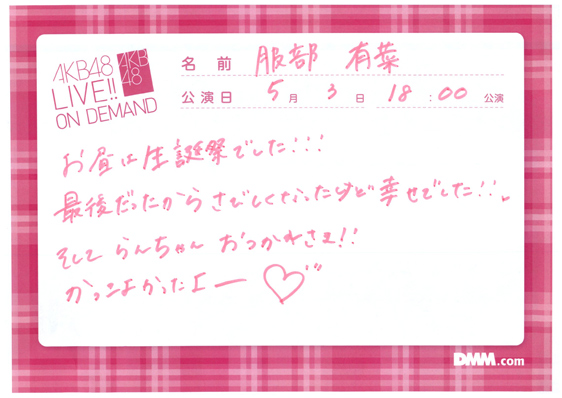 AKB48
LIVE!!
ON DEMAND
AKB
48
名前 服部 有菜
公演日 5月 3日 18:00 公演
お昼は生誕祭でした!!!
最後だったからさびしくなったけど幸せでした!!
そして らんちゃん おつかれさま!!
かっこよかったよー♡
DMM.com